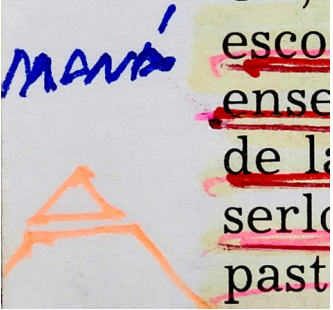 MANÁ
esco
ense
de la
serlo
past